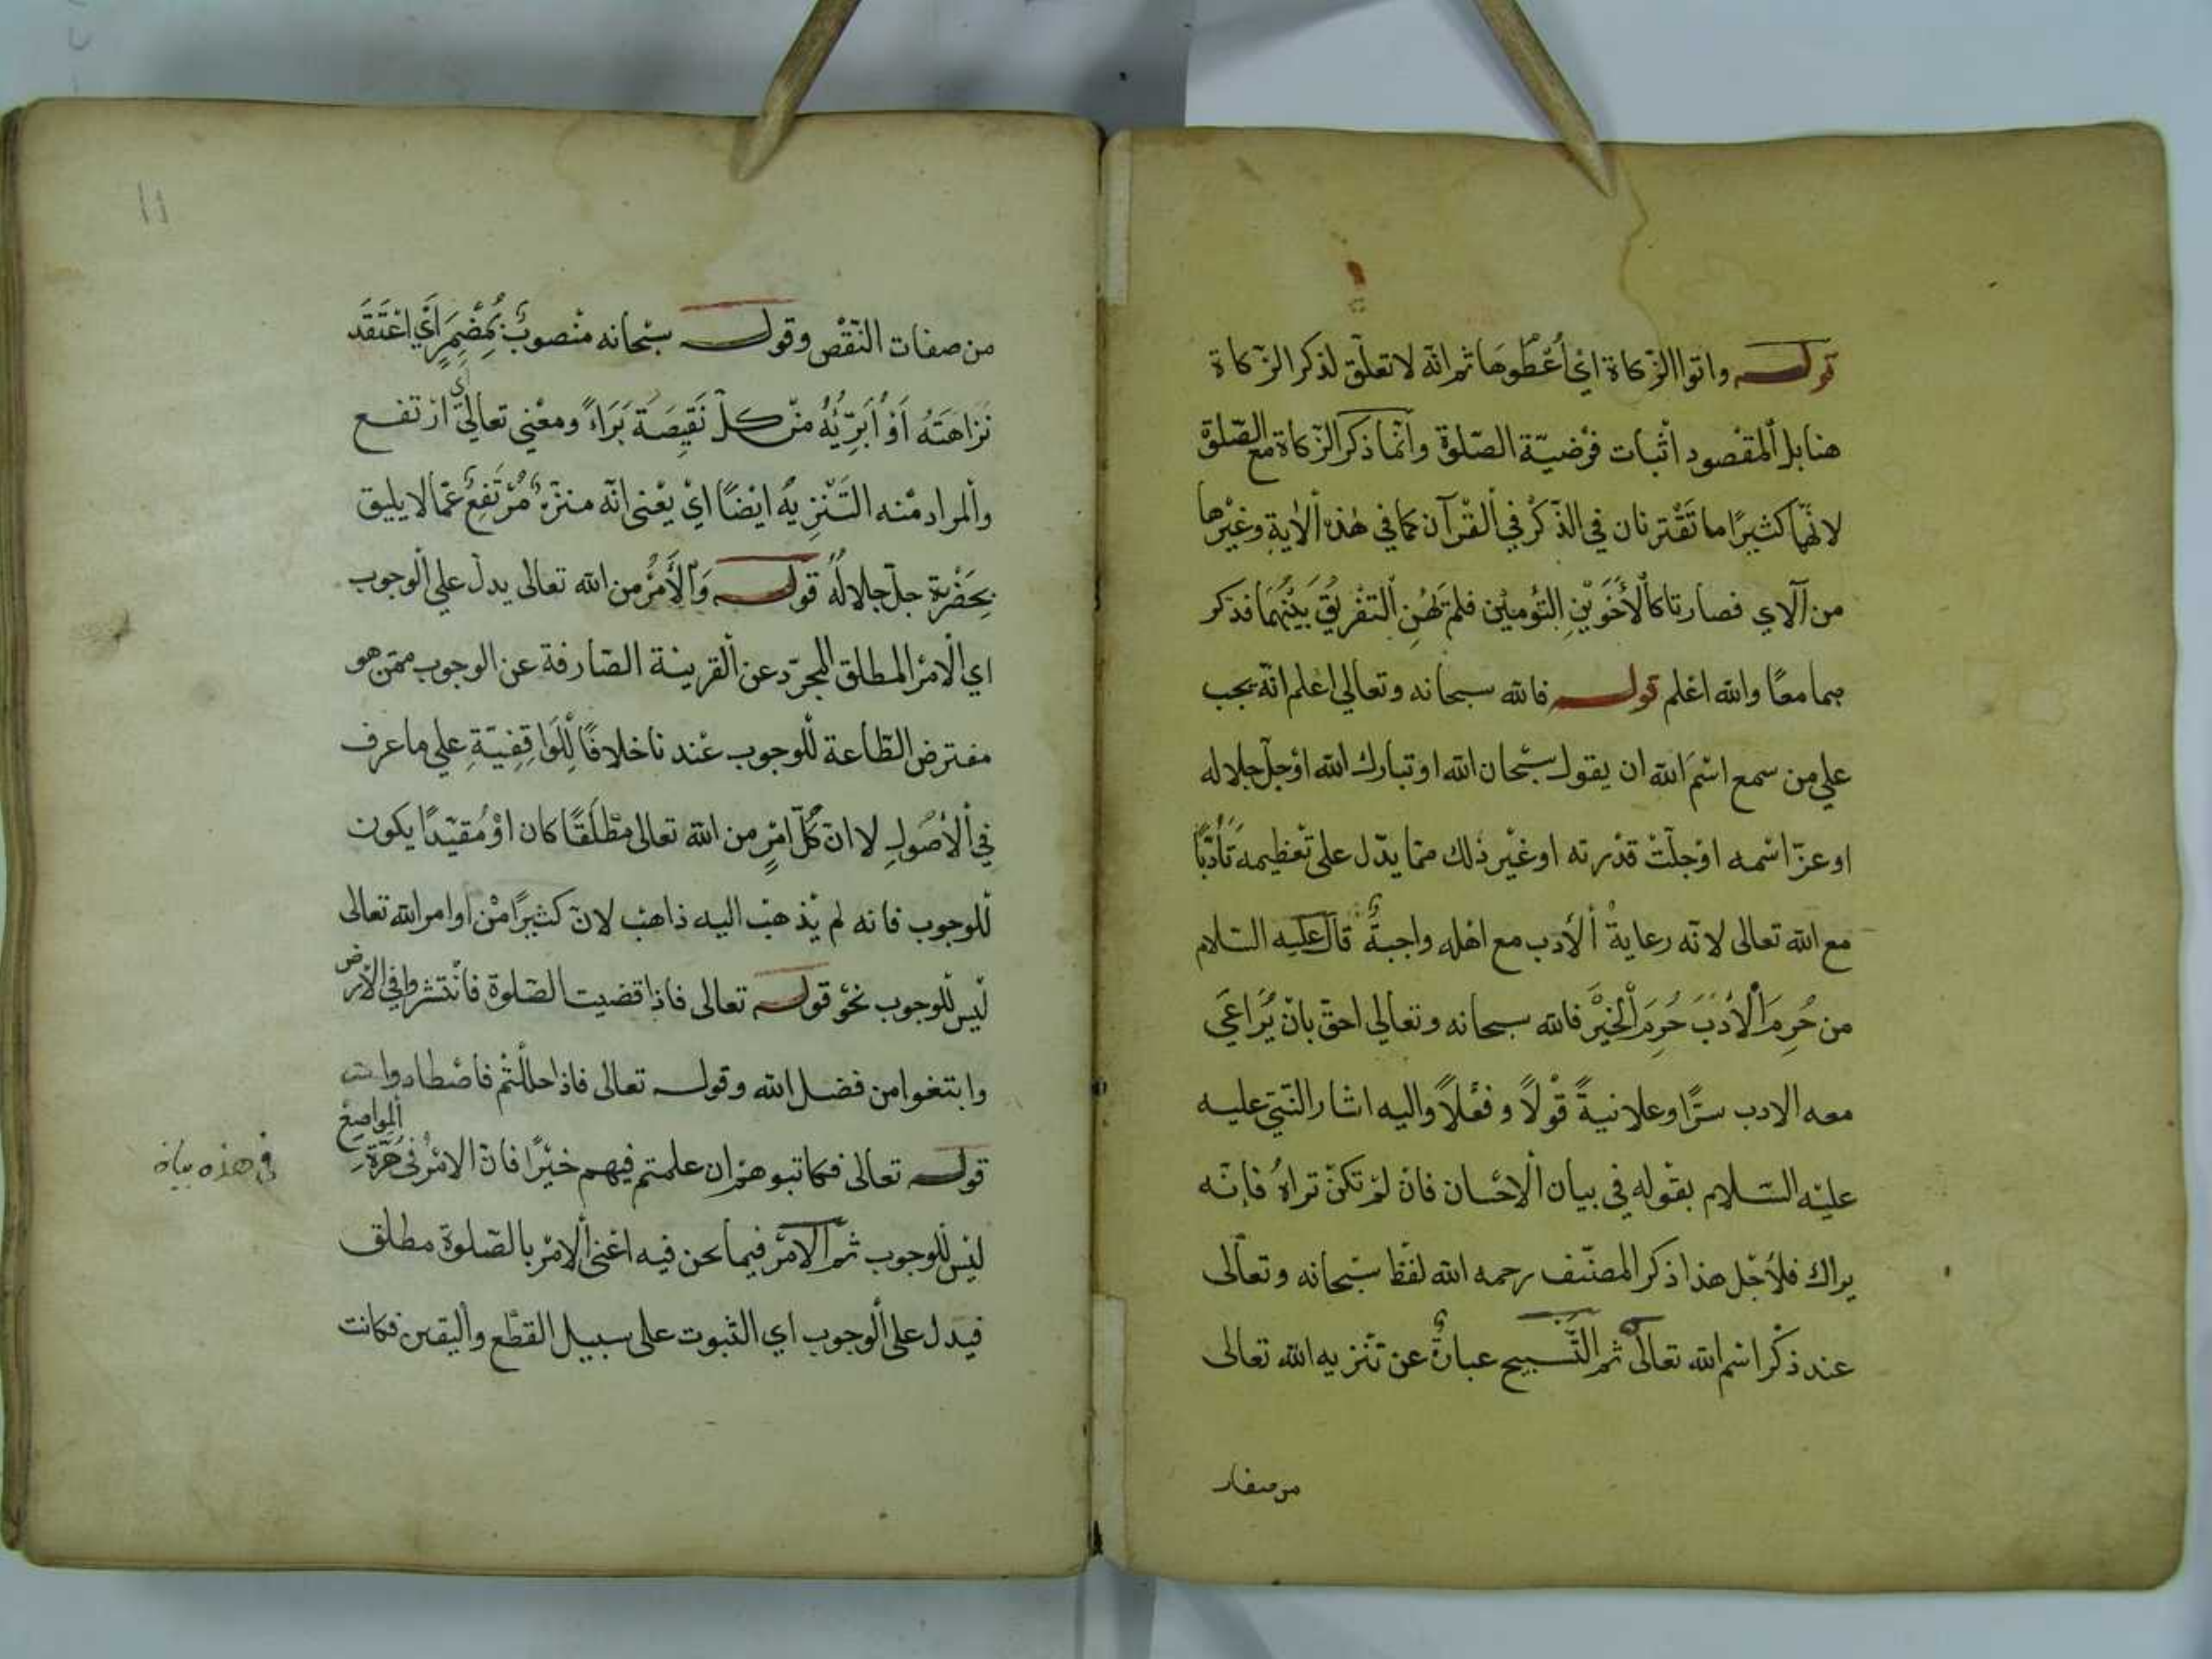 قوله واتوا الزكاة اي أعطوها ثم انه لا تعلق لذكر الزكاة
هنا بل المقصود اثبات فرضية الصلوة وانما ذكر الزكاة مع الصلوة
لانهما كثيرا ما تقترنان في الذكر في القرآن كما في هذه الاية وغيرها
من الآي فصارتا كالأخوين التؤمين فلم يهن التفريق بينهما فذكر
بهما معا والله اعلم قوله فالله سبحانه وتعالى اعلم انه يجب
علي من سمع اسم الله ان يقول سبحان الله او تبارك الله او جل جلاله
او عز اسمه او جلت قدرته او غير ذلك مما يدل على تعظيمه تأدبا
مع الله تعالى لانه رعاية الأدب مع اهله واجبة قال عليه السلام
من حرم الأدب حرم الخير فالله سبحانه وتعالي احق بان يراعي
معه الادب سرا وعلانية قولا وفعلا واليه اشار النبي عليه
عليه السلام بقوله في بيان الاحسان فان لم تكن تراه فانه
يراك فلأجل هذا ذكر المصنف رحمه الله لفظ سبحانه وتعالى
عند ذكر اسم الله تعالى ثم التسبيح عبارة عن تنزيه الله تعالى
من صفات
١١
من صفات النقص وقوله سبحانه منصوب بمضمر اي اعتقد
نزاهته أو أبرئه من كل نقيصة براء ومعنى تعالى اي ارتفع
والمراد منه التنزيه ايضا اي يعني انه منزه مرتفع عما لا يليق
بحضرة جل جلاله قوله والأمر من الله تعالى يدل علي الوجوب
اي الامر المطلق المجرد عن القرينة الصارفة عن الوجوب ممن هو
مفترض الطاعة للوجوب عندنا خلافا للواقفية علي ما عرف
في الأصول لا ان كل امر من الله تعالى مطلقا كان او مقيدا يكون
للوجوب فانه لم يذهب اليه ذاهب لان كثيرا من اوامر الله تعالى
ليس للوجوب نحو قوله تعالى فاذا قضيت الصلوة فانتشروا في الارض
وابتغوا من فضل الله وقوله تعالى فاذا حللتم فاصطادوا
قوله تعالى فكاتبوهم ان علمتم فيهم خيرا فان الامر في المواضع
في هذه
ليس للوجوب ثم الامر فيما نحن فيه اعني الامر بالصلوة مطلق
فيدل على الوجوب اي الثبوت على سبيل القطع واليقين فكانت